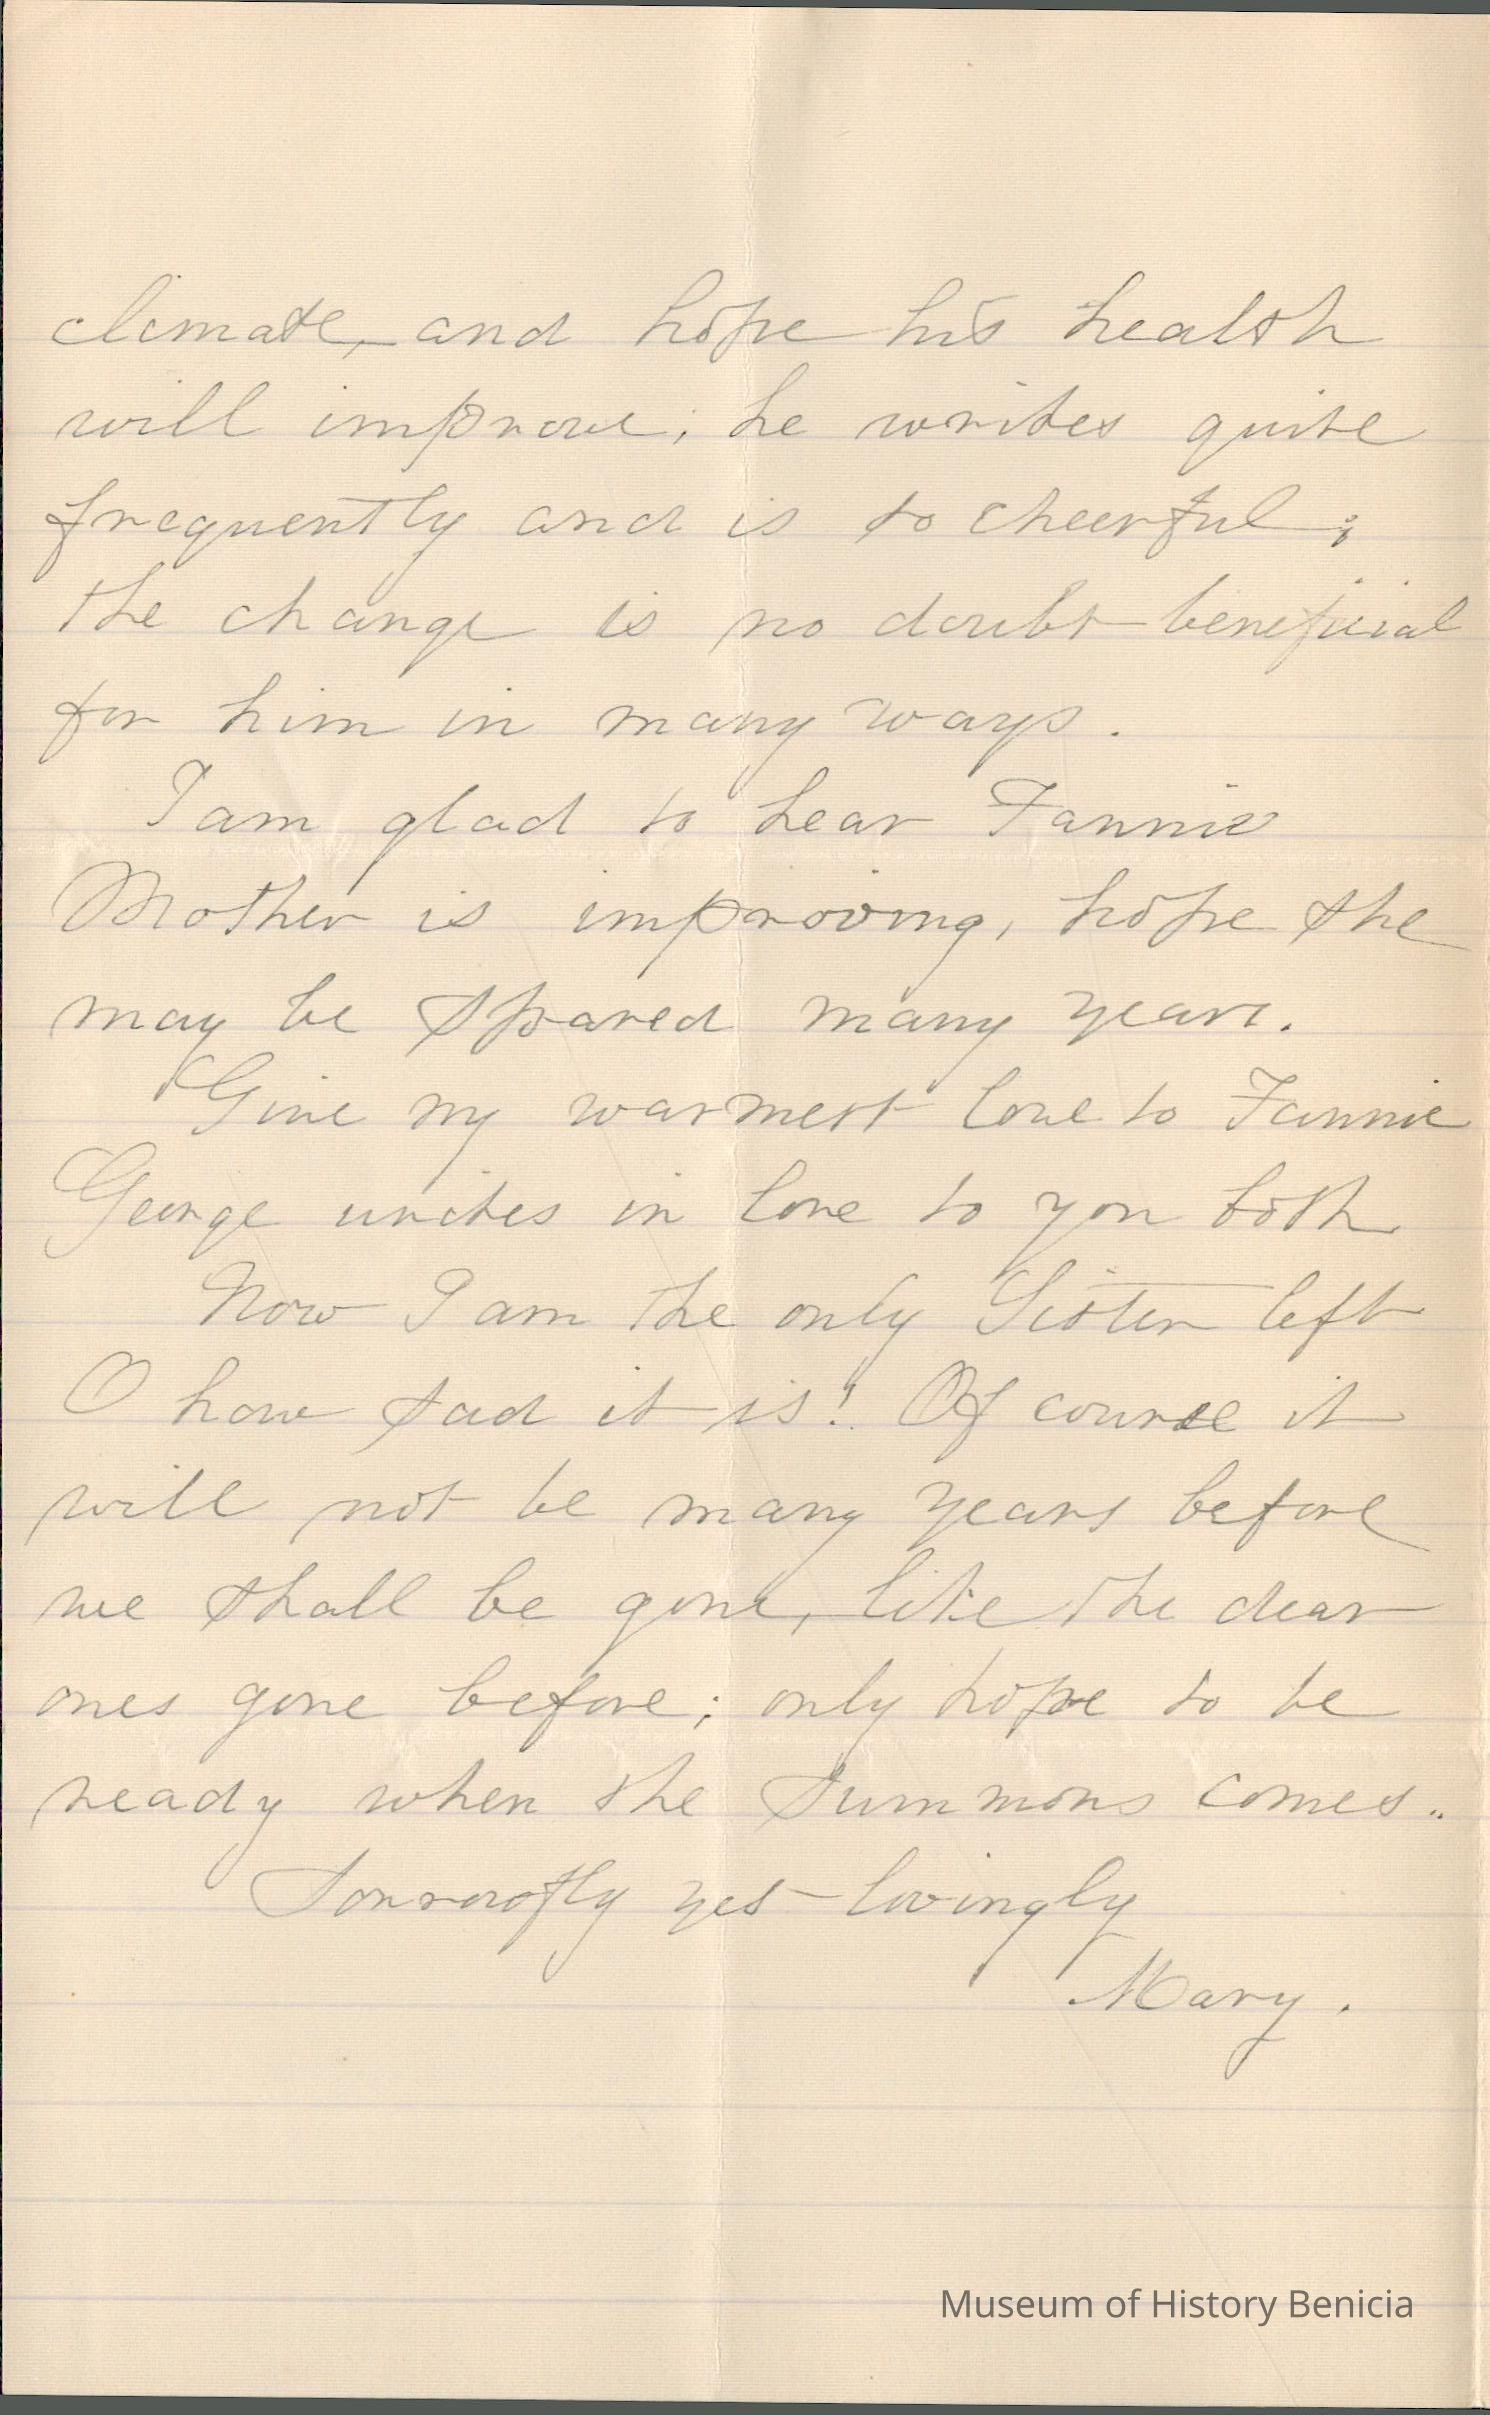 climate, and hope his health
will improve; he writes quite
frequently and is so cheerful;
the change is no doubt beneficial
for him in many ways.
I am glad to hear Fannie
Mother is improving, hope she
may be spared many years.
Give my warmest love to Fannie
George unites in love to you both
Now I am the only Sister left
O how sad it is! Of course it
will not be many years before
we shall be gone, like the dear
ones gone before; only hope to be
ready when the summons comes..
Sorrowfly yet lovingly
Mary.
Museum of History Benicia